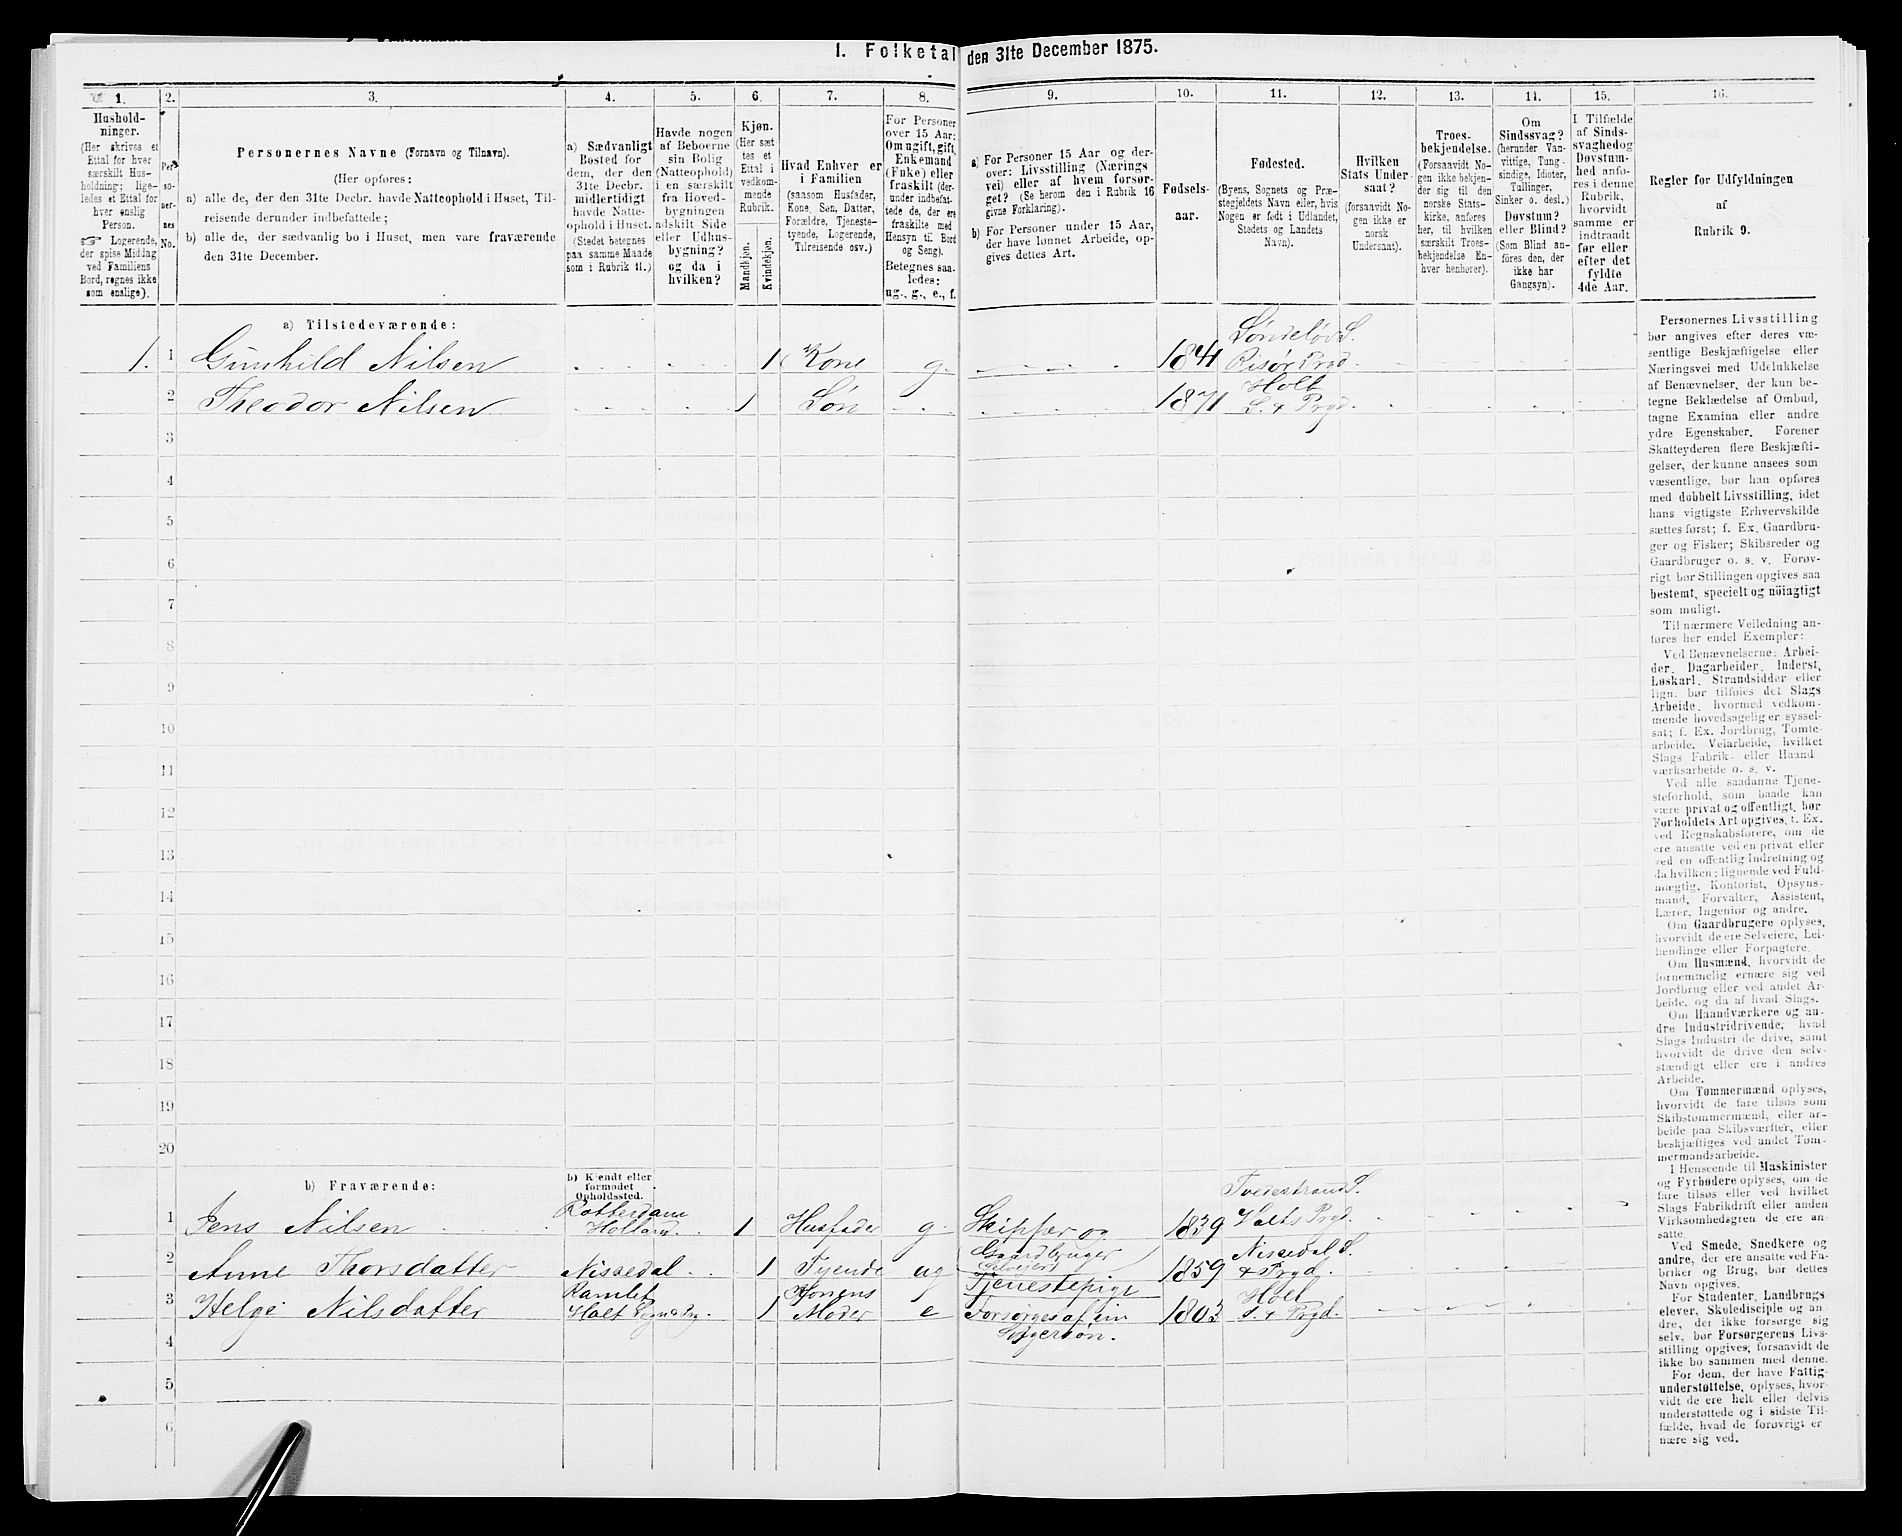 I. Folketal den 31te December 1875.
1. 2. 3. 4. 5. 6. 7. 8. 9. 10. 11. 12. 13. 14. 15. 16.
Hushold-
ninger.
(Her skrives et
Ettal for hver
særskilt Hus-
holdning; lige-
ledes et Ettal for
hver enslig
Person.
☞ Logerende,
der spise Middag
ved Familiens
Bord, regnes ikke
som enslige).
Per-
so-
ner-
nes
No.
Personernes Navne (Fornavn og Tilnavn).
(Her opføres:
a) alle de, der den 31te Decbr. havde Natteophold i Huset, Til-
reisende derunder indbefattede;
b) alle de, der sædvanlig bo i Huset, men vare fraværende
den 31te December.
a) Sædvanligt
Bosted for
dem, der den
31te Decbr.
midlertidigt
havde Natte-
ophold i Huset.
(Stedet betegnes
paa samme Maade
som i Rubrik 11.)
Havde nogen
af Beboerne
sin Bolig
(Natteophold)
i en særskilt
fra Hoved-
bygningen
adskilt Side-
eller Udhus-
bygning?
og da i
hvilken?
Kjøn.
(Her sæt-
tes et
Ettal i
vedkom-
mende
Rubrik.
Mandkjøn.
Kvindekjøn.
Hvad Enhver er
i Familien
(saasom Husfader,
Kone, Søn, Datter,
Forældre, Tjeneste-
tyende, Logerende,
Tilreisende osv.)
For Personer
over 15 Aar:
Om ugift, gift,
Enkemand
(Enke) eller
fraskilt (der-
under indbefat-
tede de, der ere
fraskilte med
Hensyn til Bord
og Seng).
Betegnes saa-
ledes:
ug., g., e., f.
a) For Personer 15 Aar og der-
over: Livsstilling (Nærings-
vei) eller af hvem forsør-
get? (Se herom den i Rubrik 16
givne Forklaring).
b) For Personer under 15 Aar,
der have lønnet Arbeide, op-
gives dettes Art.
Fødsels-
aar.
Fødested.
(Byens, Sognets og Præ-
stegjeldets Navn eller, hvis
Nogen er født i Udlandet,
Stedets og Landets
Navn).
Hvilken
Stats Under-
saat?
(forsaavidt No-
gen ikke er
norsk
Undersaat).
Troes-
bekjendelse.
(Forsaavidt No-
gen ikke bekjen-
der sig til den
norske Stats-
kirke, anføres
her, til hvilken
særskilt Troes-
bekjendelse En-
hver henhører).
Om
Sindssvag?
(herunder Van-
vittige, Tung-
sindige, Idioter,
Tullinger,
Sinker o. desl.)
Døvstum?
eller Blind?
(Som Blind an-
føres den, der
ikke har
Gangsyn).
I Tilfælde
af Sinds-
svaghed og
Døvstum-
hed anfø-
res i denne
Rubrik,
hvorvidt
samme er
indtraadt
før eller
efter det
fyldte
4de Aar.
Regler for Udfyldningen
af
Rubrik 9.
a) Tilstedeværende:
1. 1 Gunhild Nilsen 1 Kone g. 1841 Søndeløv S.
Risør Prgd.
2 Theodor Nilsen 1 Søn 1871 Holt
S. + Prgd.
3
4
5
6
7
8
9
10
11
12
13
14
15
16
17
18
19
20
b) Fraværende:
b) Kjendt eller
formodet
Opholdssted.
1 Jens Nilsen Rotterdam
Holland. 1 Husfader g. Skipper og
Gaardbruger
Selveier 1839 Tvedestrand S.
Holts Prgd.
2 Anne Thorsdatter Nissedal 1 Tyende ug Tjenestepige 1859 Nissedal S.
+ Prgd.
3 Helge Nilsdatter Ramlet
Holt Sogn & Prg. 1 Konens
Moder e Forsørges af sin
Svigersøn. 1803 Holt
S. + Prgd.
4
5
6
Personernes Livsstilling
bør angives efter deres væ-
sentlige Beskjæftigelse eller
Næringsvei med Udelukkelse
af Benævnelser, der kun be-
tegne Beklædelse af Ombud,
tagne Examina eller andre
ydre Egenskaber. Forener
Skatteyderen flere Beskjæfti-
gelser, der kunne ansees som
væsentlige, bør han opføres
med dobbelt Livsstilling, idet
hans vigtigste Erhvervskilde
sættes først; f. Ex. Gaardbru-
ger og Fisker; Skibsreder og
Gaardbruger o. s. v. Forøv-
rigt bør Stillingen opgives saa
bestemt, specielt og nöiagtigt
som muligt.
Til nærmere Veiledning an-
føres her endel Exempler:
Ved Benævnelserne: Arbei-
der, Dagarbeider, Inderst,
Løskarl, Strandsidder eller
lign. bør tilføies det Slags
Arbeide, hvormed vedkom-
mende hovedsagelig er syssel-
sat; f. Ex. Jordbrug, Tomte-
arbeide, Veiarbeide, hvilket
Slags Fabrik- eller Haand-
værksarbeide o. s. v.
Ved alle saadanne Tjene-
steforhold, som baade kan
være privat og offentligt, bør
Forholdets Art opgives, t. Ex.
ved Regnskabsførere, om de
ere ansatte ved en privat eller
ved en offentlig Indretning og
da hvilken; lignende ved Fuld-
mægtig, Kontorist, Opsyns-
mand, Forvalter, Assistent,
Lærer, Ingeniør og andre.
Om Gaardbrugere oplyses,
hvorvidt de ere Selveiere, Lei-
lændinge eller Forpagtere.
Om Husmænd, hvorvidt de
fornemmelig ernære sig ved
Jordbrug eller ved andet Ar-
beide, og da af hvad Slags.
Om Haandværkere og an-
dre Industridrivende, hvad
Slags Industri de drive, samt
hvorvidt de drive den selv-
stændigt eller ere i andres
Arbeide.
Om Tømmermænd oplyses,
hvorvidt de fare tilsøs som
Skibstømmermænd, eller ar-
beide paa Skibsværfter, eller
beskjæftiges ved andet Tøm-
mermandsarbeide.
I Henseende til Maskinister
og Fyrbødere oplyses, om de
fare tilsøs eller ved hvilket
Slags Fabrikdrift eller anden
Virksomhedsgren de ere an-
satte.
Ved Smede, Snedkere og
andre, der ere ansatte ved Fa-
briker og Brug, bør dettes
Navn opgives.
For Studenter, Landbrugs-
elever, Skoledisciple og an-
dre, der ikke forsørge sig
selv, bør Forsørgerens Livs-
stilling opgives, forsaavidt de
ikke bo sammen med denne.
For dem, der have Fattig-
understøttelse, oplyses, hvor-
vidt de ere helt eller delvis
understøttede og i sidste Til-
fælde, hvad de forøvrigt er-
nære sig ved.